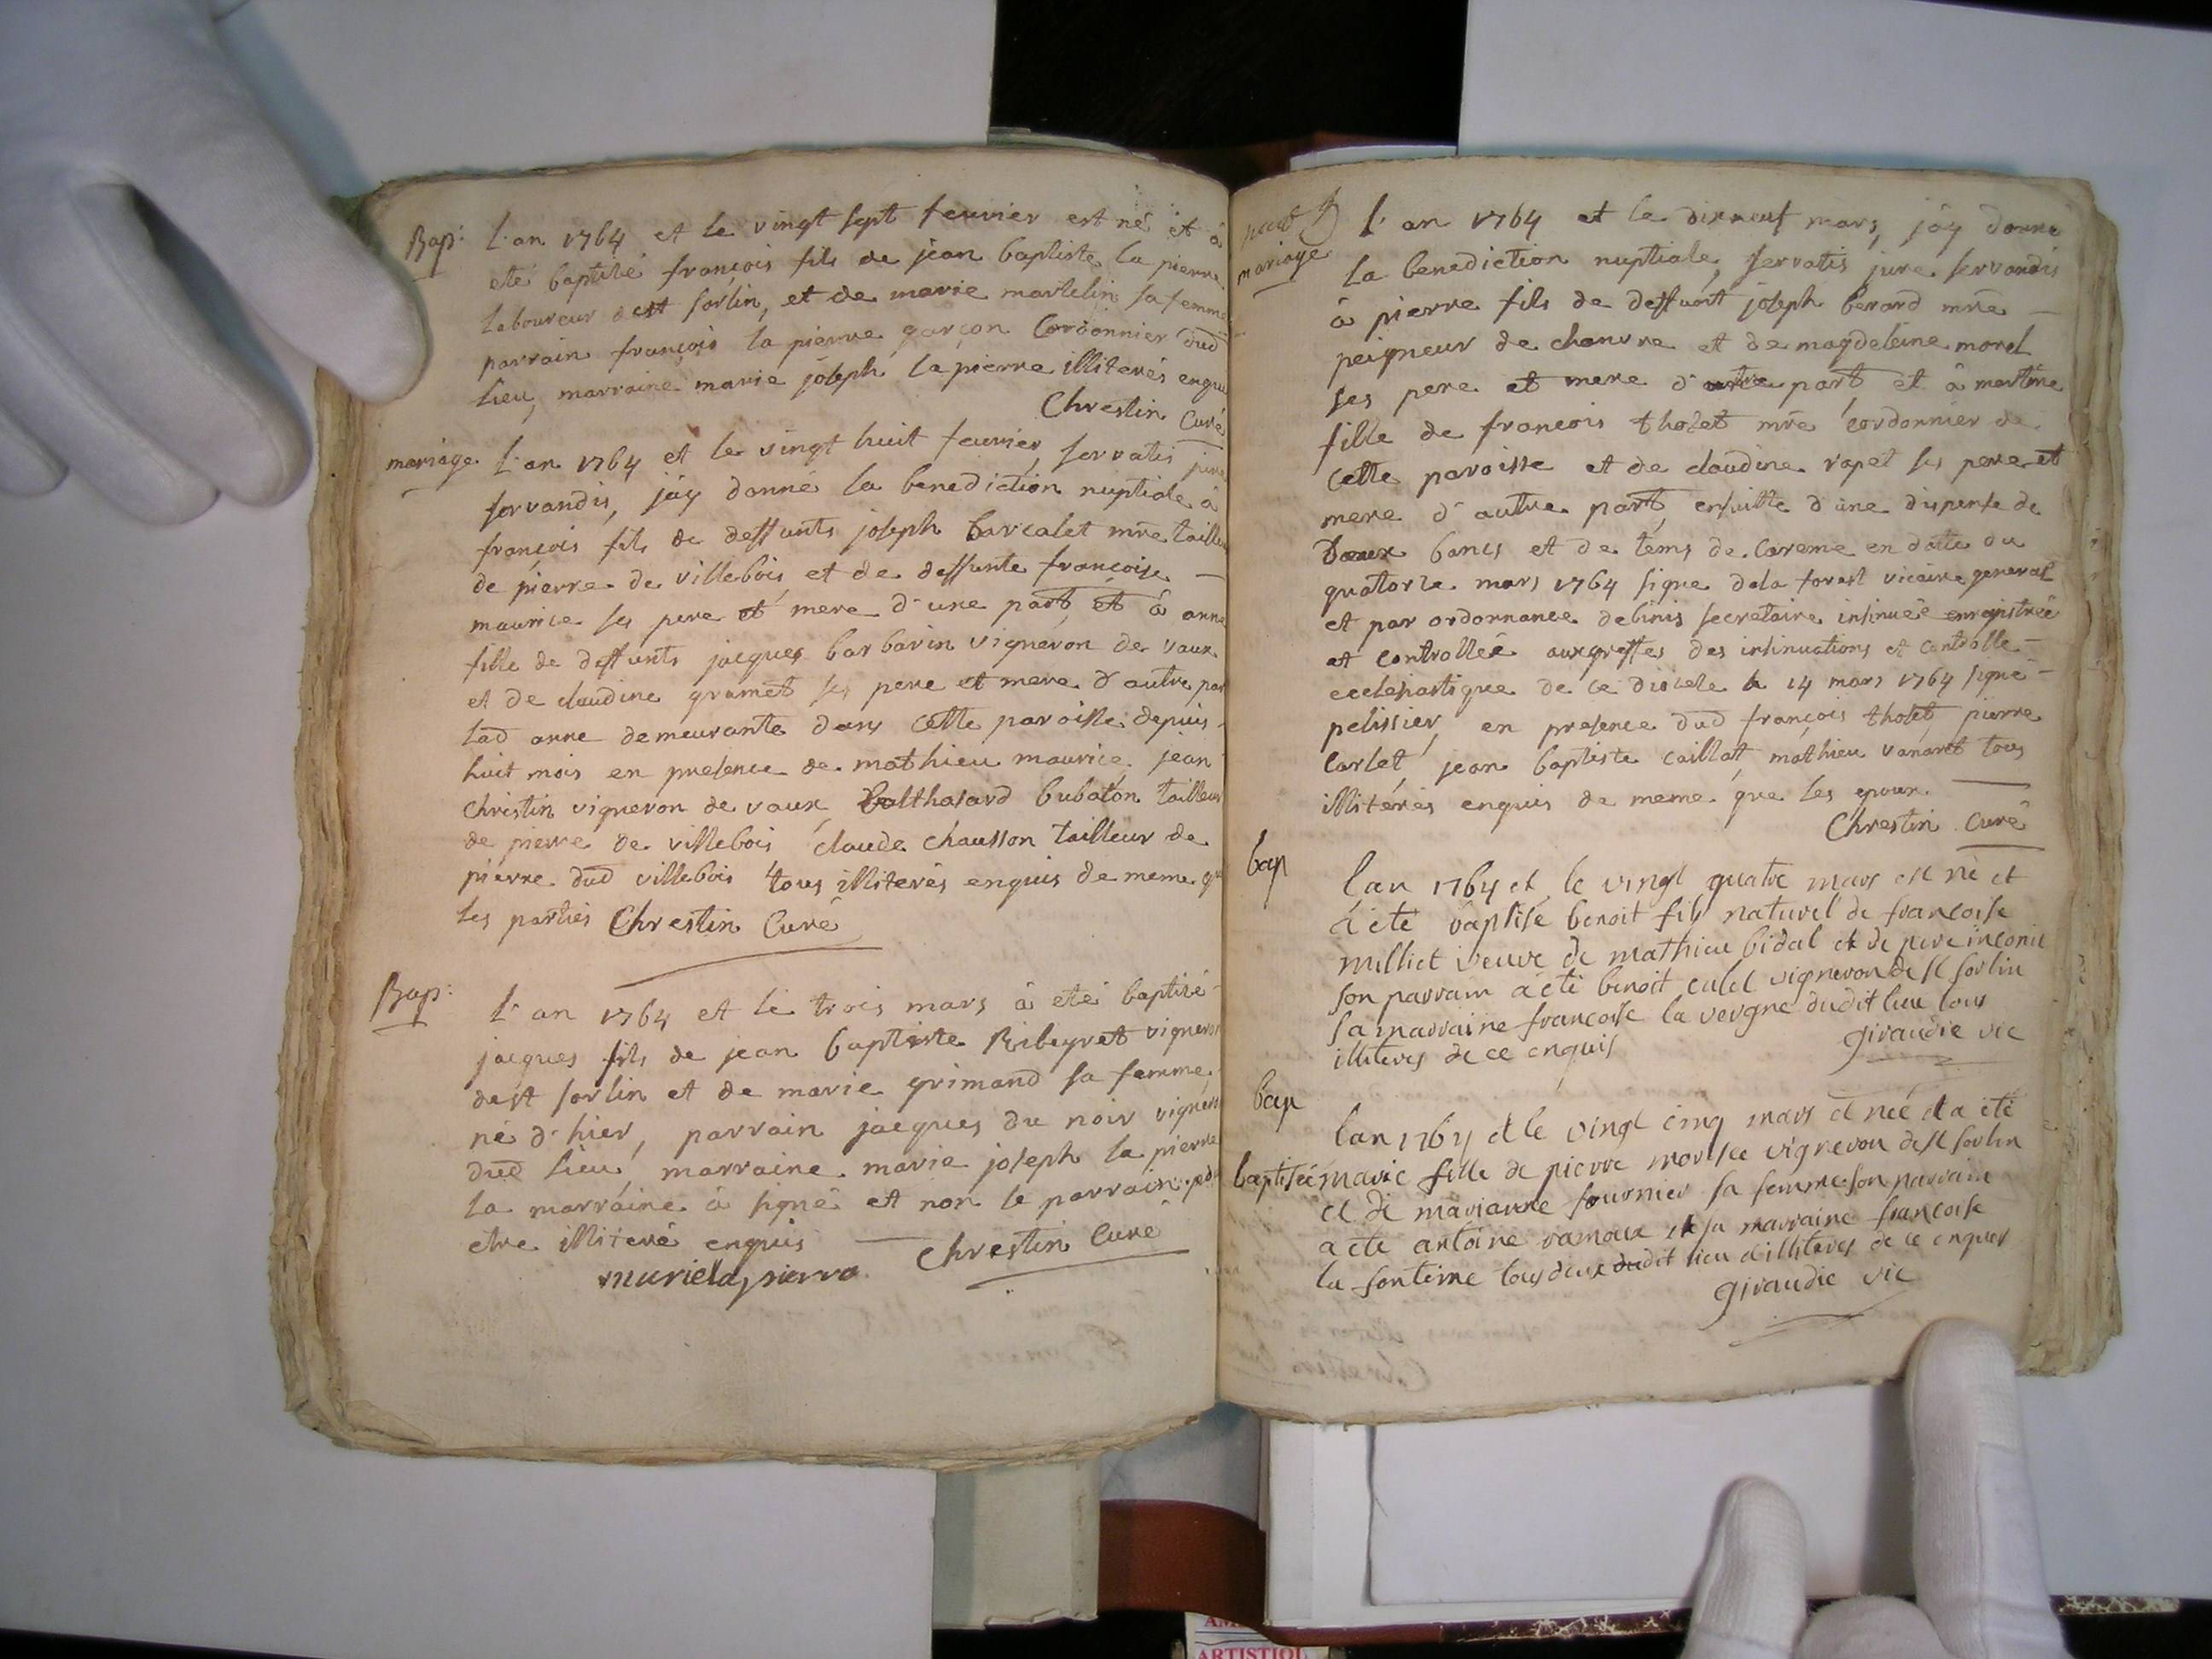 Bap: L'an 1764 et le vingt sept feuvier est né et à
eté baptisé françois fils de jean baptiste la pierre
laboureur dest sorlin, et de marie martelin sa femme
parrain françois la pierre garçon Cordonnier dud
lieu, marraine marie joseph la pierre illiterés enquis
Chrestin Curé
mariage L'an 1764 et le vingt huit feuvier, servatis jure
servandis, jáy donné la benediction nuptiale à
françois fils de deffunts joseph barcalet mre tailleur
de pierre de villebois et de deffunte françoise
maurice ses pere et mere d'une part, et à anne
fille de deffunts jacques barbarin vigneron de vaux
et de claudine gramet ses pere et mere d'autre part
lad anne demeurante dans cette paroisse depuis
huit mois en presence de mathieu maurice, jean
christin vigneron de vaux, balthasard bubaton tailleur
de pierre de villebois claude chausson tailleur de
pierre dud villebois tous illiterés enquis de meme que
les parties Chrestin Curé
Bap: L'an 1764 et le trois mars à eté baptisé
jacques fils de jean baptiste Ribeyret vigneron
dest sorlin et de marie grimand sa femme,
né d'hier, parrain jacques du noir vigneron
dud lieu, marraine marie joseph la pierre
la marraine à signé et non le parrain
etre illiteré enquis Chrestin Curé
marielapierre
mariage L'an 1764 et le dixneuf mars, jáy donné
la benediction nuptiale, servatis jure servandis
à pierre fils de deffunt joseph berard mre
peigneur de chanvre et de magdeleine morel
ses pere et mere d'autre part et à martine
fille de françois tholet mre cordonnier de
cette paroisse et de claudine rapet ses pere et
mere d'autre part, ensuitte d'une dispense de
Deaux bancs et de tems de careme en datte du
quatorze mars 1764 signe dela forest vicaire general
et par ordonnance debinis secretaire insinuée enregistrée
et controllée auxgreffes des insinuations et controlle
ecclesiastique de ce diocese le 14 mars 1764 signé
pelissier, en presence dud françois tholet, pierre
Carlet, jean baptiste caillat, mathieu vanaret tous
illitérés enquis de meme que les epoux.
Chrestin Curé
bap
L'an 1764 et le vingt quatre mars est né et
à eté baptise benoit fils naturel de francoise
milliet veuve de mathieu bidal et de pere inconu
son parrain à eté benoit culet vigneron de st sorlin
sa marraine francoise la vergne dudit lieu tous
illiteres de ce enquis giraudie vic
bap
l'an 1764 et le vingt cinq mars et née et a eté
baptisée marie fille de pierre morisee vigneron dest sorlin
et de marianne fournier sa femme son parrain
a eté antoine ramoux et sa marraine francoise
la fontaine tous deux dudit lieu et illiteres de ce enquis
giraudie vic
ARTISTIQL